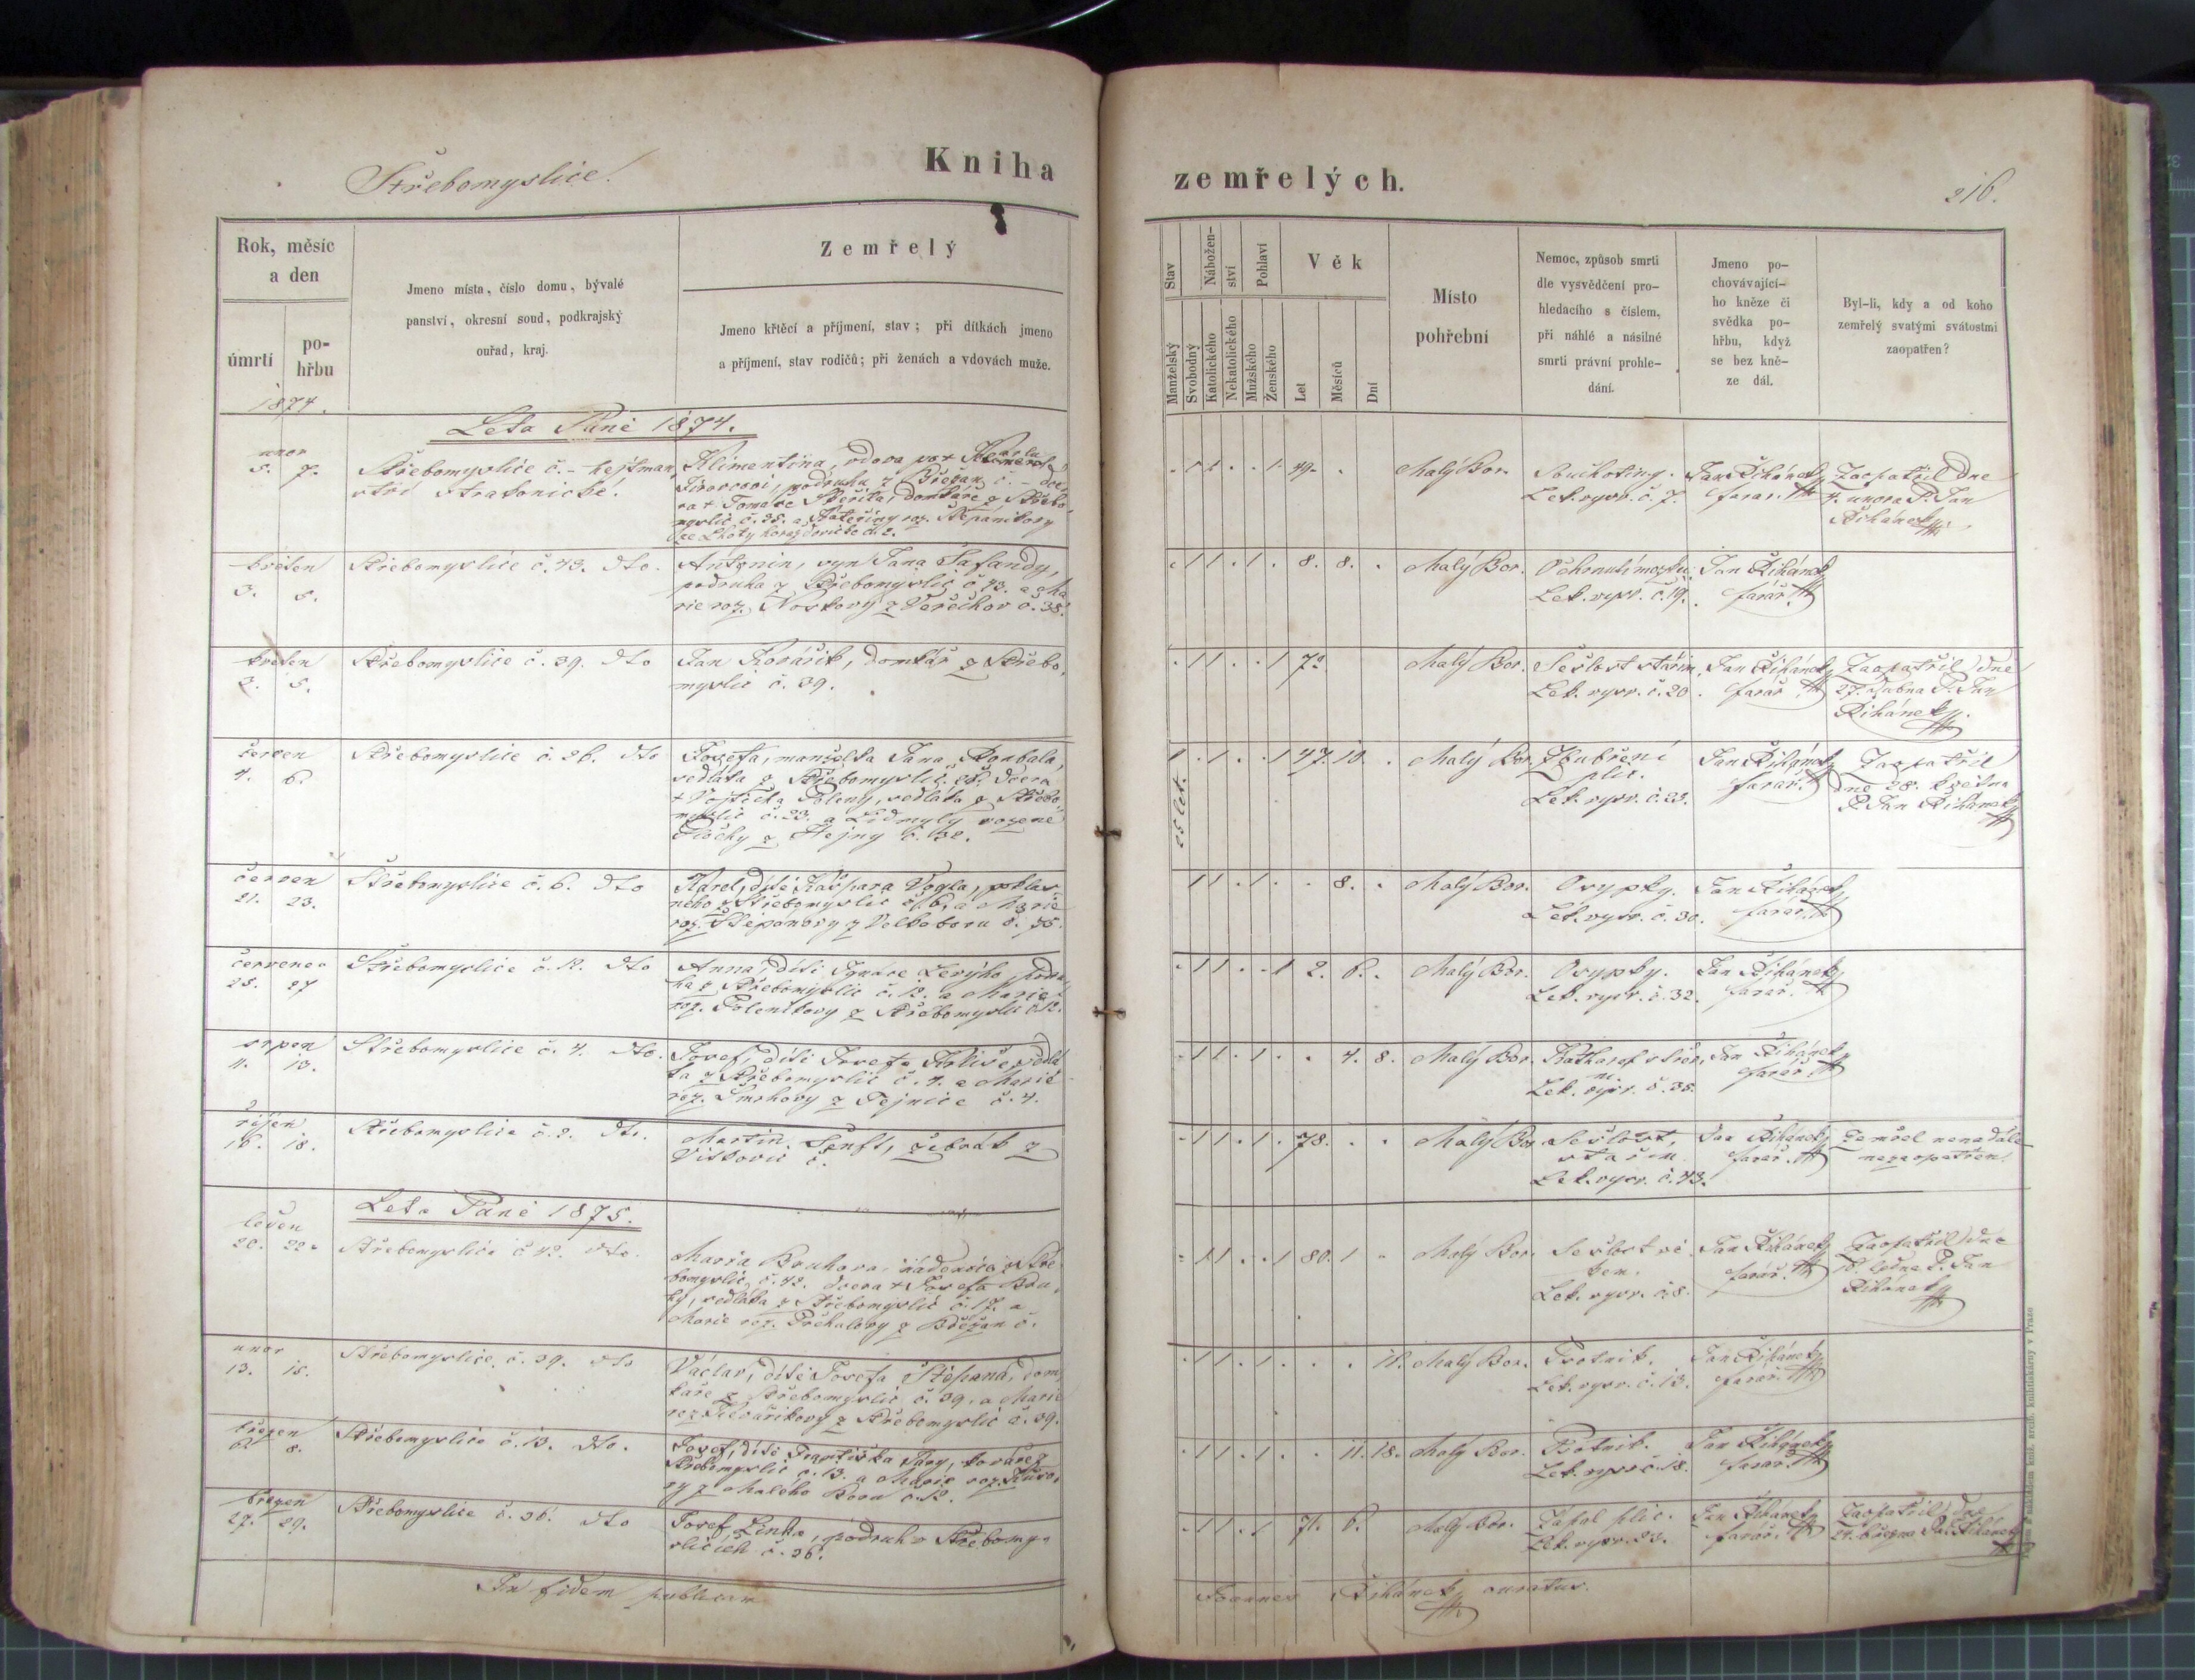 Střebomyslice.
Kniha
zemřelých.
216.
Rok, měsíc
a den
úmrtí
po-
hřbu
Jmeno místa, číslo domu, bývalé
panství, okresní soud, podkrajský
ouřad, kraj.
Zemřelý
Jmeno křtěcí a příjmení, stav; při dítkách jmeno
a příjmení, stav rodičů; při ženách a vdovách muže.
Stav
Manželský
Svobodný
Nábožen-
ství
Katolického
Nekatolického
Pohlaví
Mužského
Ženského
Věk
Let
Měsíců
Dní
Místo
pohřební
Nemoc, způsob smrti
dle vysvědčení pro-
hledacího s číslem,
při náhlé a násilné
smrti právní prohle-
dání.
Jmeno po-
chovávající-
ho kněze či
svědka po-
hřbu, když
se bez kně-
ze dál.
Byl-li, kdy a od koho
zemřelý svatými svátostmi
zaopatřen?
1874.
Leta Páně 1874.
unor
5. 7.
Střebomyslice č. - hejtman
ství Strakonické.
Klimentina, vdova po +
podruhu z Břežan č. - dce
ra + Tomáše domkáře z Střebo
myslic č. 25. a Kateřiny roz. Štěpánkovy
ze Lhoty č. 2.
49.
Malý Bor.
Souchotiny.
Lek. vysv. č. 7.
Jan Řihánek
farář.
Zaopatřil dne
4. unora P. Jan
Řihánek
květen
3. 5.
Střebomyslice č. 43. dto.
Antonin, syn Jana Šafandy,
podruha z Střebomyslic č. 43. a Ma
rie roz. Noskovy z Veřechov č. 38.
8. 8.
Malý Bor.
Ochrnutí mozku.
Lek. vysv. č. 19.
Jan Řihánek
farář.
květen
3. 5.
Střebomyslice č. 39. dto
Jan Kovářik, domkář z Střebo
myslic č. 39.
Malý Bor.
Sešlost stářím,
Lek. vysv. č. 20.
Jan Řihánek
farář.
Zaopatřil dne
27. dubna P. Jan
Řihánek.
červen
4. 6.
Střebomyslice č. 26. dto
Josefa, manželka Jana Boubala,
sedláka z Střebomyslic č. 26. dcera
+ Vojtěcha Poleny, sedláka z Střebo
myslic č. 23. a Lidmyly rozené
z Hejny č. 32.
25 let.
47. 10.
Malý Bor.
plic.
Lek. vysv. č. 25.
Jan Řihánek
farář.
Zaopatřil
dne 28. května
P. Jan Řihánek
červen
21. 23.
Střebomyslice č. 6. dto
Karel, dítě Kašpara Vogla,
z Střebomyslic č. 6. a Marie
roz. Štěpanovy z Velkoboru č. 35.
8.
Malý Bor.
Osypky.
Lek. vysv. č. 30.
Jan Řihánek
farář.
červenec
25. 27
Střebomyslice č. 12. dto
Anna, dítě Ignáce podru
ha z Střebomyslic č. 12. a Marie
roz. Polenkovy z Střebomyslic č. 12.
2. 6.
Malý Bor.
Osypky.
Lek. vysv. č. 32.
Jan Řihánek
farář.
srpen
11. 13.
Střebomyslice č. 4. dto.
Josef, dítě Josefa sedlá
ka z Střebomyslic č. 4. a Marie
roz. Šmrhovy z Tejnice č. 4.
4. 8.
Malý Bor.
Katharof střev
ní.
Lek. vysv. č. 35.
Jan Řihánek
farář.
říjen
16. 18.
Střebomyslice č. 2. dto.
Martin Senft, žebrák z
Vítkovic č.
78.
Malý Bor.
Sešlost,
stářím
Lek. vysv. č. 43.
Jan Řihánek
farář.
Zemřel nenadále
nezaopatřen.
Leta Páně 1875.
leden
20. 22.
Střebomyslice č. 42. dto.
Maria nádenice z Stře
bomyslic č. 42. dcera + Josefa
sedláka z Střebomyslic č. 17. a
Marie roz. z Břežan č.
80. 1
Malý Bor.
Sešlost vě
kem.
Lek. vysv. č. 8.
Jan Řihánek
farář.
Zaopatřil dne
18. ledna P. Jan
Řihánek
unor
13. 15.
Střebomyslice č. 39. dto
Václav, dítě Josefa Štěpana, dom
káře z Střebomyslic č. 39. a Marie
roz. Kovářikovy z Střebomyslic č. 39.
18.
Malý Bor.
Psotnik.
Lek. vysv. č. 13.
Jan Řihánek
farář.
březen
6. 8.
Střebomyslice č. 13. dto.
Josef, dítě Františka kováře z
Střebomyslic č. 13. a Marie roz.
z Malého Boru č. 12.
11. 18.
Malý Bor.
Psotnik.
Lek. vysv. č. 18.
Jan Řihánek
farář.
březen
27. 29.
Střebomyslice č. 36. dto
Josef Linha, podruh v Střebomy-
slicích č. 36.
71. 6.
Malý Bor.
Zapal plic.
Lek. vysv. 23.
Jan Řihánek
farář.
Zaopatřil dne
24. března P. J. Řihánek
In fidem publicam
Joannes Řihánek curatus.